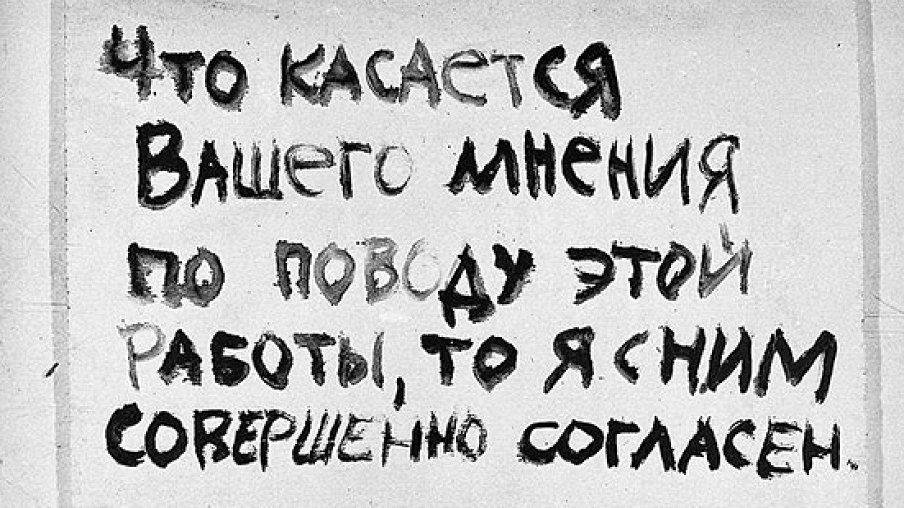 Что касается
Вашего мнения
по поводу этой
работы, то я с ним
совершенно согласен.